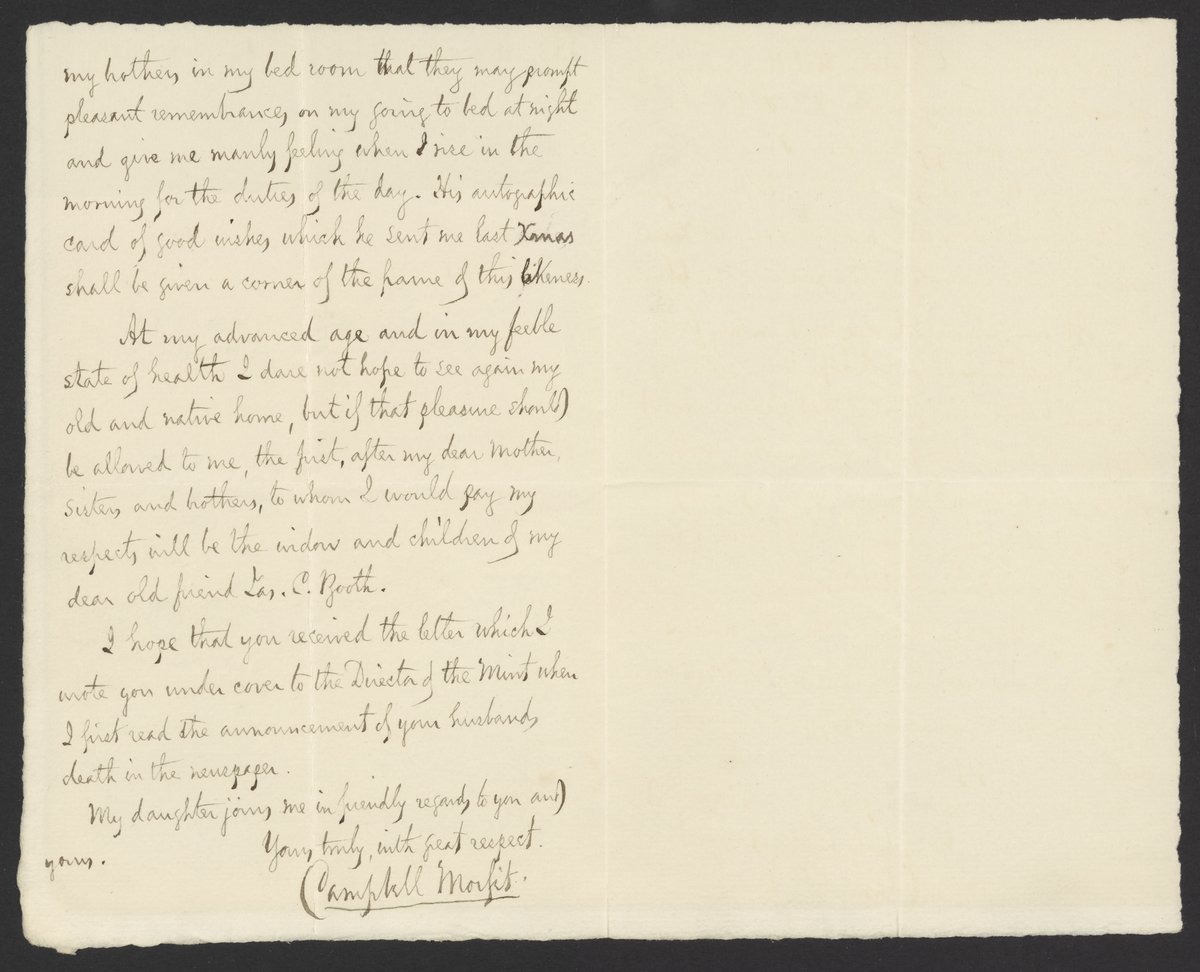 my brothers in my bed room that they may prompt
pleasant remembrances on my going to bed at night
and give me manly feeling when I rise in the
morning for the duties of the day. His autographic
card of good wishes which he sent me last Xmas
shall be given a corner of the frame of this likeness.
At my advanced age and in my feeble
state of health I dare not hope to see again my
old and native home, but if that pleasure should
be allowed to me, the first, after my dear mother,
sisters and brothers, to whom I would pay my
respects will be the widow and children of my
dear old friend Jas. C. Booth.
I hope that you received the letter which I
wrote you under cover to the Director of the Mint when
I first read the announcement of your husbands
death in the newspaper.
My daughter joins me in friendly regards to you and
yours.
Yours truly, with great respect.
Campbell Morfit.